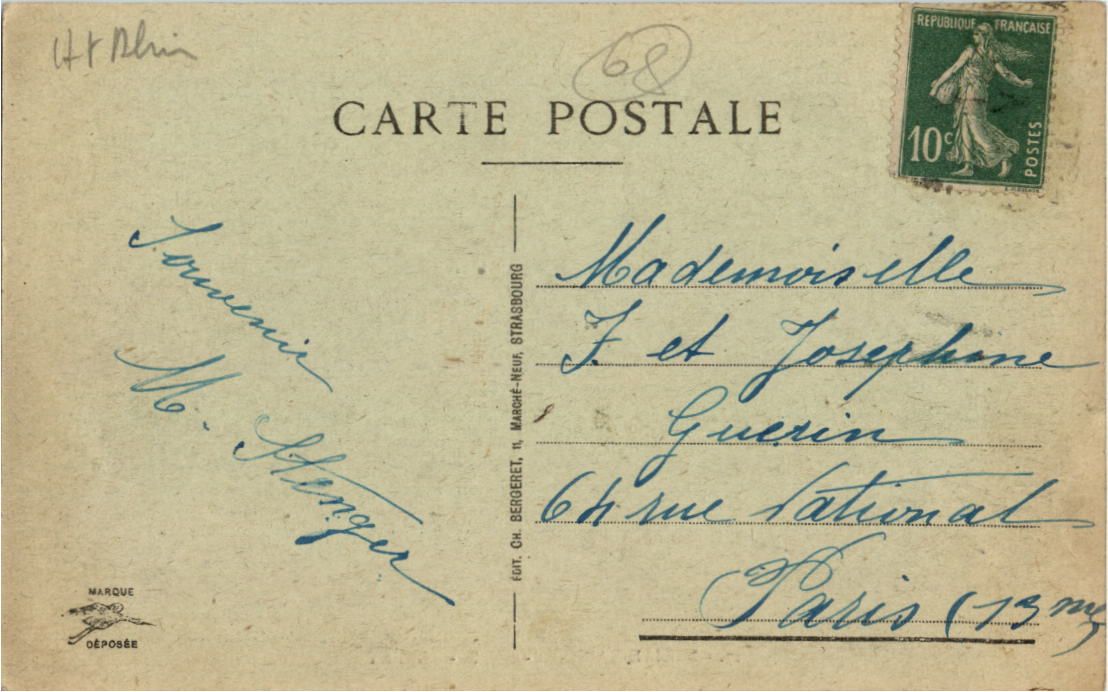 Ht Rhin
68
CARTE POSTALE
RÉPUBLIQUE FRANÇAISE
10c
POSTES
Souvenir
M. Stenger
ÉDIT. CH. BERGERET, 11, MARCHÉ-NEUF, STRASBOURG
Mademoiselle
J. et Josephine
Guerin
64 rue National
Paris (13me)
MARQUE
DÉPOSÉE